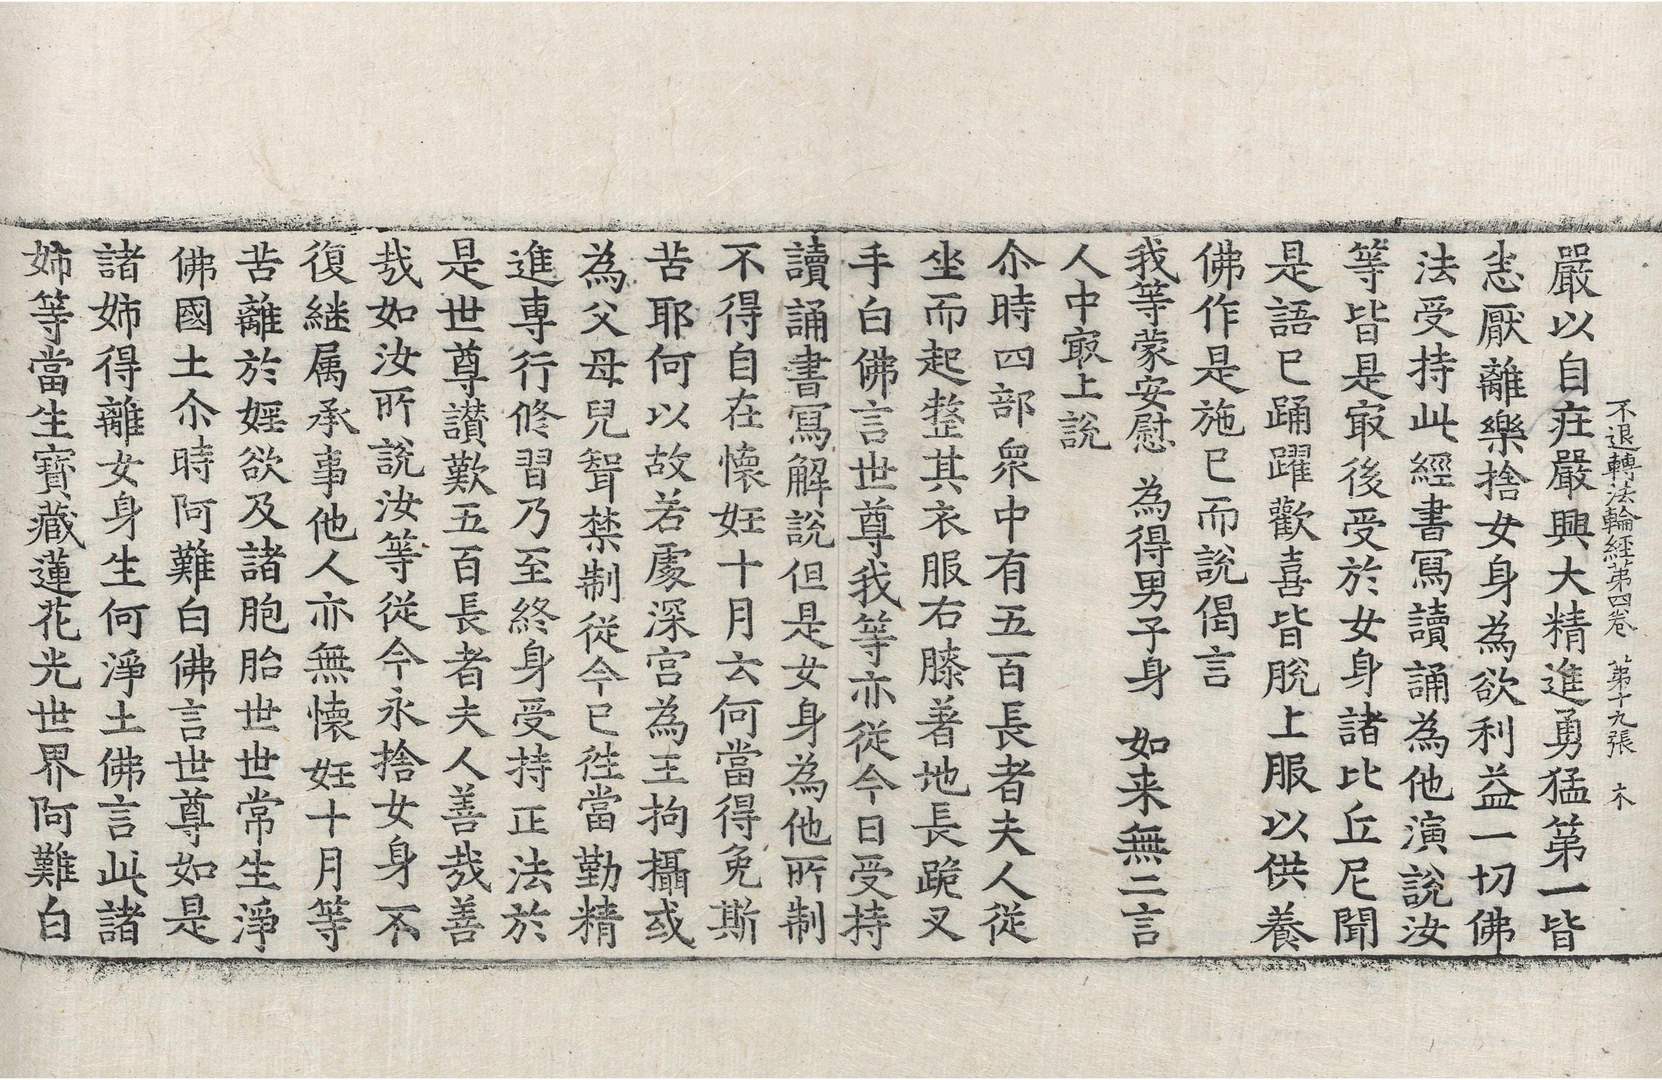 不退轉法輪經第四卷　第十九張　木
嚴以自庄嚴興大精進勇猛第一皆
悉厭離樂捨女身為欲利益一切佛
法受持此經書寫讀誦為他演說汝
等皆是㝡後受於女身諸比丘尼聞
是語已踊躍歡喜皆脫上服以供養
佛作是施已而說偈言
我等蒙安慰　為得男子身　如来無二言
人中㝡上說
尒時四部衆中有五百長者夫人從
坐而起整其衣服右膝著地長跪叉
手白佛言世尊我等亦從今日受持
讀誦書寫解說但是女身為他所制
不得自在懷妊十月云何當得免斯
苦耶何以故若處深宮為王拘攝或
為父母兒聟禁制從今已往當勤精
進專行修習乃至終身受持正法於
是世尊讃歎五百長者夫人善哉善
哉如汝所說汝等從今永捨女身不
復継属承事他人亦無懷妊十月等
苦離於婬欲及諸胞胎世世常生淨
佛國土尒時阿難白佛言世尊如是
諸姊得離女身生何淨土佛言此諸
姊等當生寶藏蓮花光世界阿難白